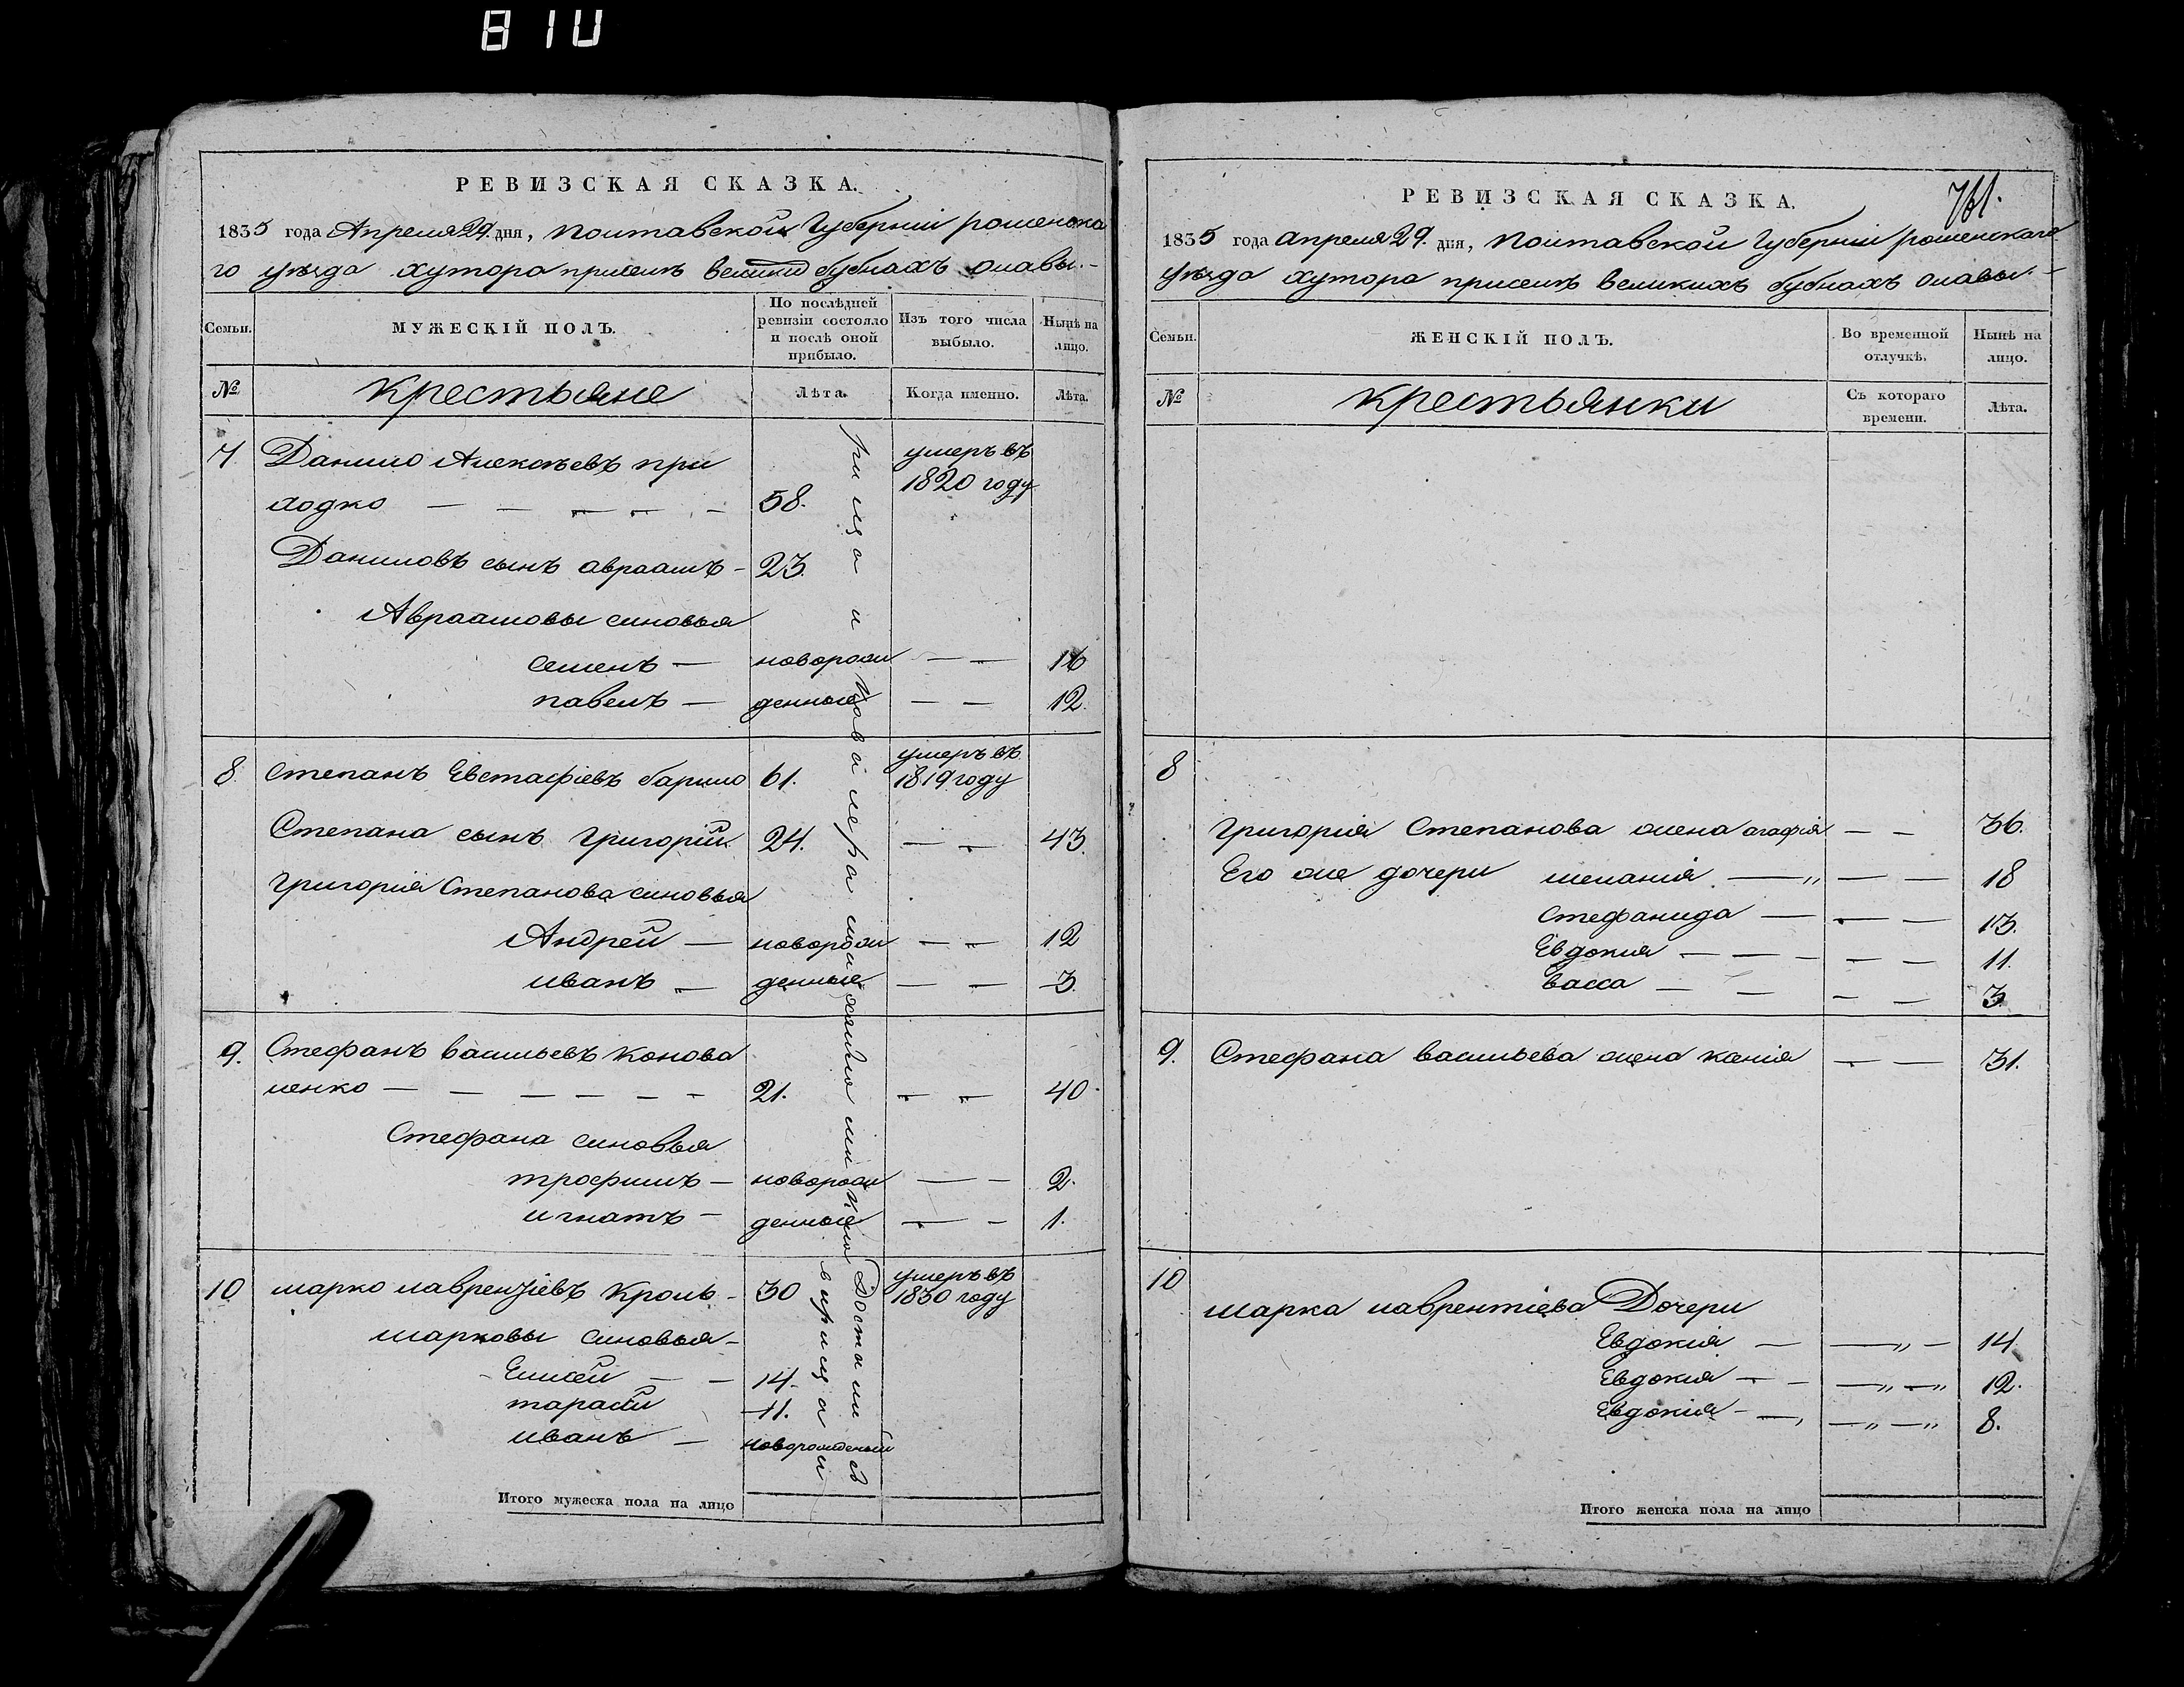 810
РЕВИЗСКАЯ СКАЗКА.
1835 года Апреля 29. дня, Полтавской Губерніи роменска
го уѣзда хутора при селѣ великих бубнахъ
Семьи.
МУЖЕСКІЙ ПОЛЪ.
По послѣдней ревизіи состояло и послѣ оной прибыло.
Изъ того числа выбыло.
Нынѣ на лицо.
№
Крестьяне
Лѣта.
Когда именно.
Лѣта.
7. Данило Алексѣевъ при
ходко 58. умеръ въ 1820 году
Даниловъ сынъ авраамъ 23.
Авраамовы синовья
семенъ новорож 16
павелъ денные 12.
8. степанъ Евстафіевъ барило 61. умеръ въ 1819 году
Степана сынъ Григорій 24. 43.
Григорія Степанова синовья
Андрей новорож 12
иванъ денные 3.
9. Стефанъ васильевъ Конова
ленко 21. 40.
Стефана синовья
трофимъ новорож 2.
игнатъ денные 1.
10 марко лаврентіевъ Кроль 30 умеръ въ 1830 году
марковы синовья
Елисей 14.
тарасій 11.
иванъ новорожденый
Итого мужеска пола на лицо
761.
РЕВИЗСКАЯ СКАЗКА.
1835 года апреля 29. дня, Полтавской Губерніи роменскаго
уѣзда хутора при селѣ великихъ бубнахъ
Семьи.
ЖЕНСКІЙ ПОЛЪ.
Во временной отлучкѣ.
Нынѣ на лицо.
№
Крестьянки
Съ котораго времени.
Лѣта.
8
Григорія Степанова жена агафія 36.
Его же дочери меланія 18
Стефанида 13.
Евдокия 11.
васса 3.
9. Стефана васильева жена 31.
10
марка лаврентіева Дочери
Евдокія 14
Евдокия 12.
Евдокія 8.
Итого женска пола на лицо